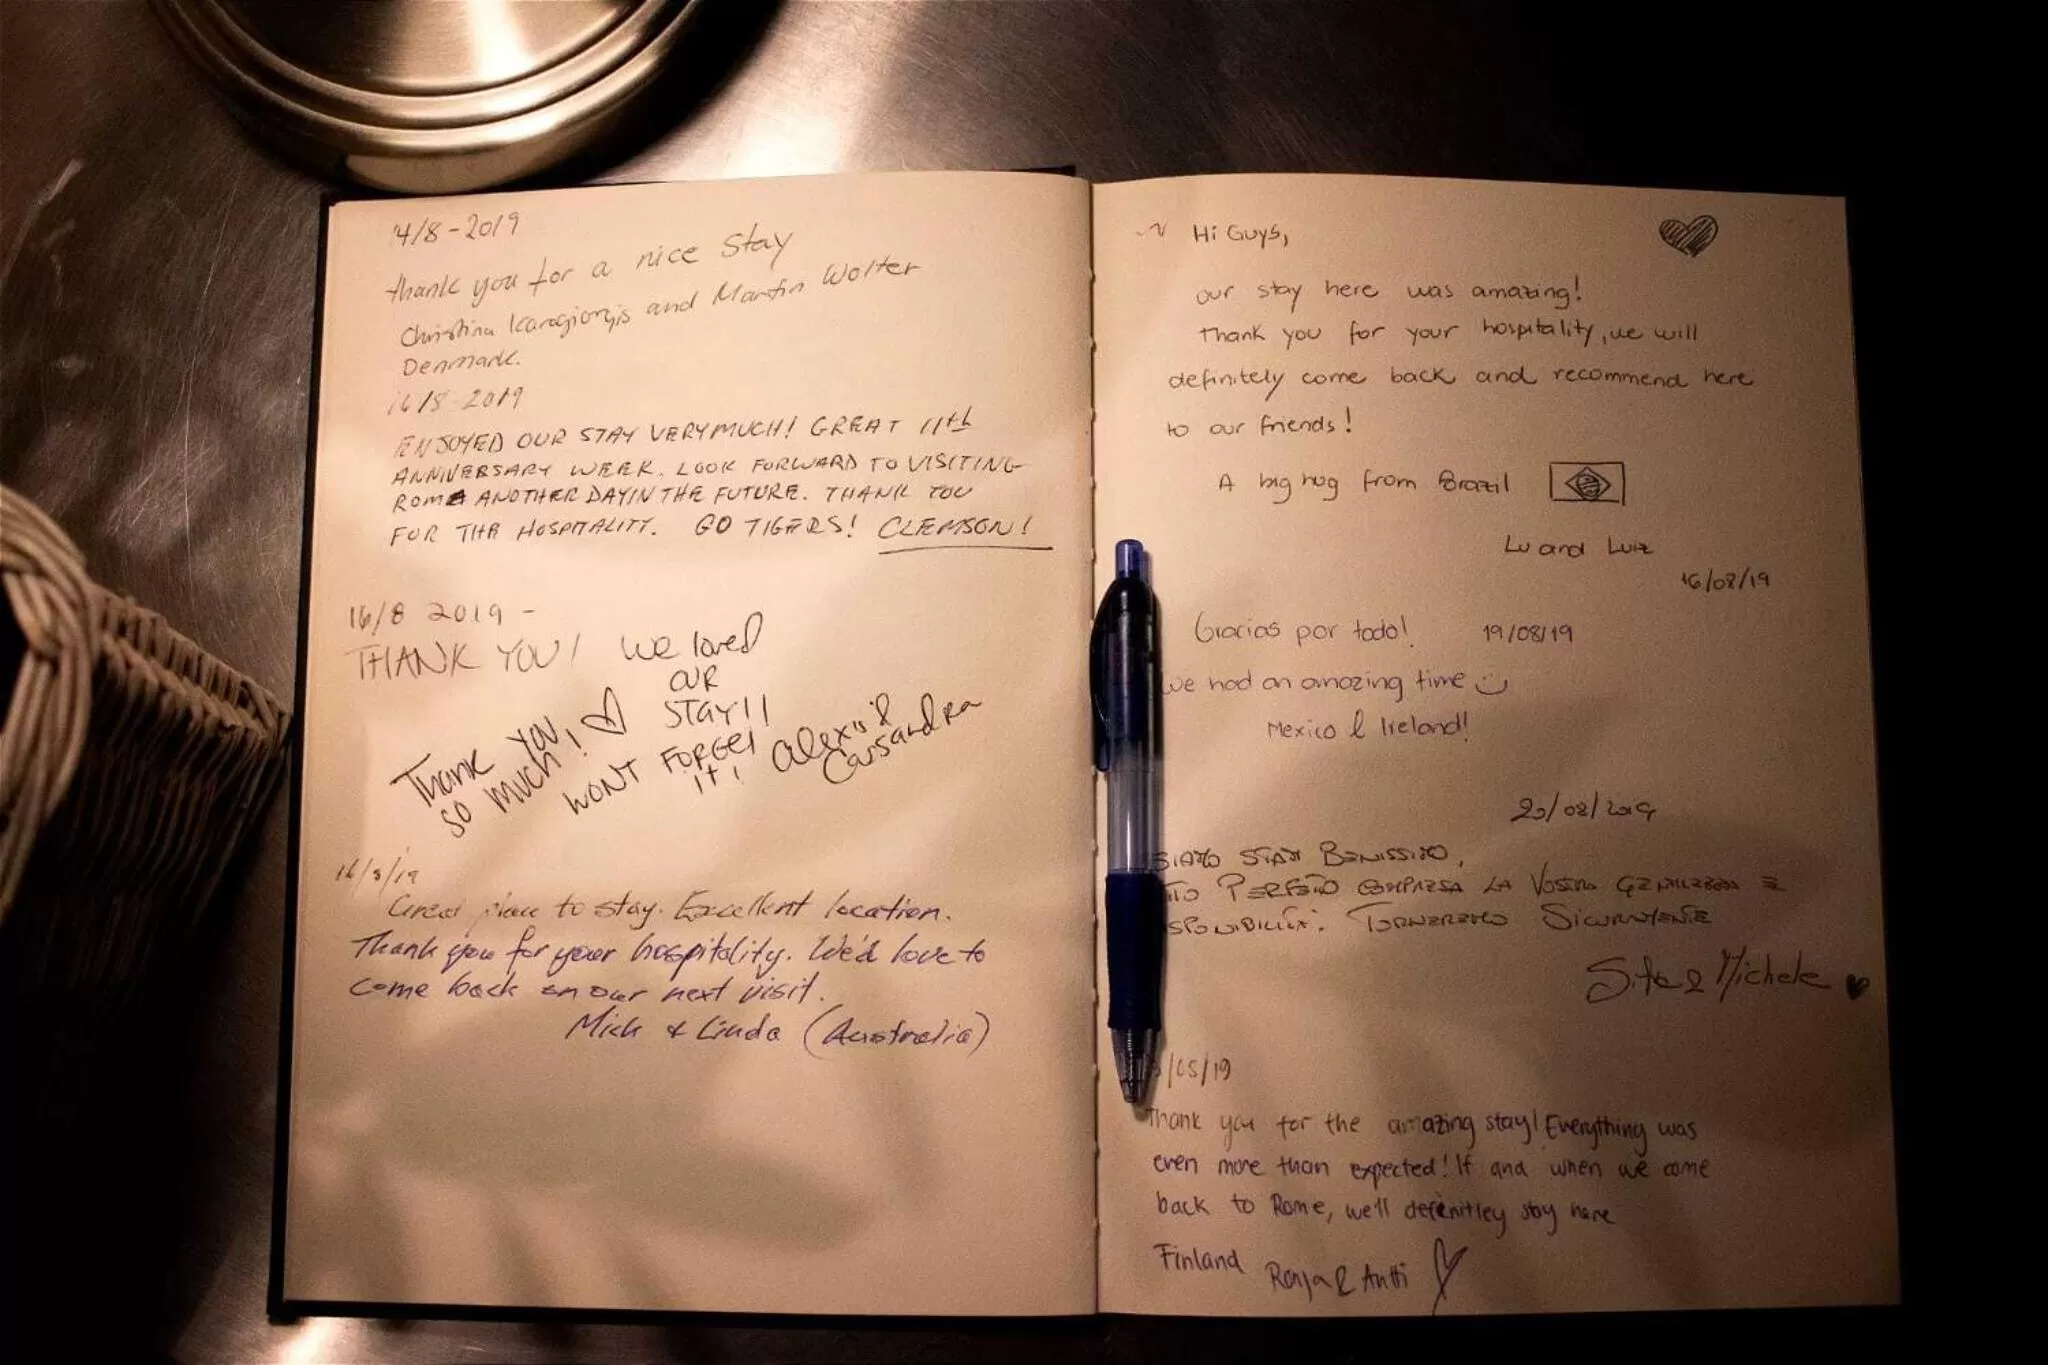 14/8-2019
Thank you for a nice stay
Christina Karagiorgis and Martin Wolter
Denmark.
16/8-2019
ENJOYED OUR STAY VERY MUCH! GREAT 11th
ANNIVERSARY WEEK. LOOK FORWARD TO VISITING
ROME ANOTHER DAY IN THE FUTURE. THANK YOU
FOR THE HOSPITALITY. GO TIGERS! CLEMSON!
16/8 2019 -
THANK YOU! We loved
OUR
STAY!!
WONT FORGET
IT!
Thank YOU
SO MUCH!
Alexis &
Cassandra
16/8/19
Great place to stay. Excellent location.
Thank you for your hospitality. We'd love to
come back on our next visit.
Mick & Linda (Australia)
Hi Guys,
our stay here was amazing!
Thank you for your hospitality, we will
definitely come back and recommend here
to our friends!
A big hug from Brazil
Lu and Luiz
16/08/19
Gracias por todo! 19/08/19
We had an amazing time
Mexico & Ireland!
20/08/2019
SIAMO STATI BENISSIMO,
PERFETTO COMPRESA LA VOSTRA GENTILEZZA E
TORNEREMO SICURAMENTE
& Michele
/05/19
Thank you for the amazing stay! Everything was
even more than expected! If and when we come
back to Rome, we'll defenitley stay here
Finland Ronja & Antti